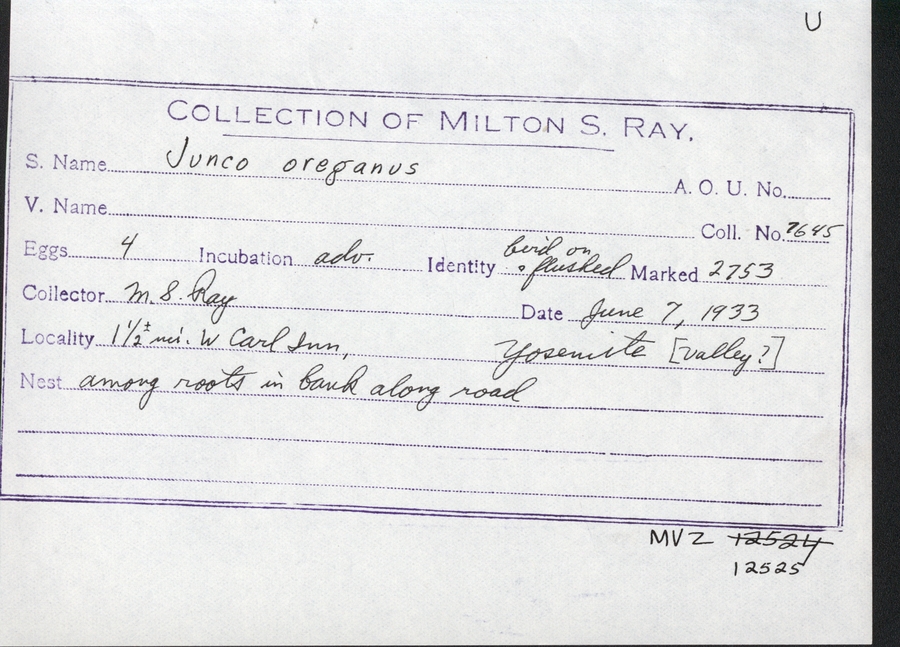 U
COLLECTION OF MILTON S. RAY.
S. Name Junco oreganus A. O. U. No.
V. Name Coll. No. 7645
Eggs 4 Incubation adv. Identity bird on & flushed Marked 2753
Collector M. S. Ray Date June 7, 1933
Locality 1 1/2± mi. W Carl Inn, Yosemite [Valley?]
Nest among roots in bank along road
MVZ 12524
12525